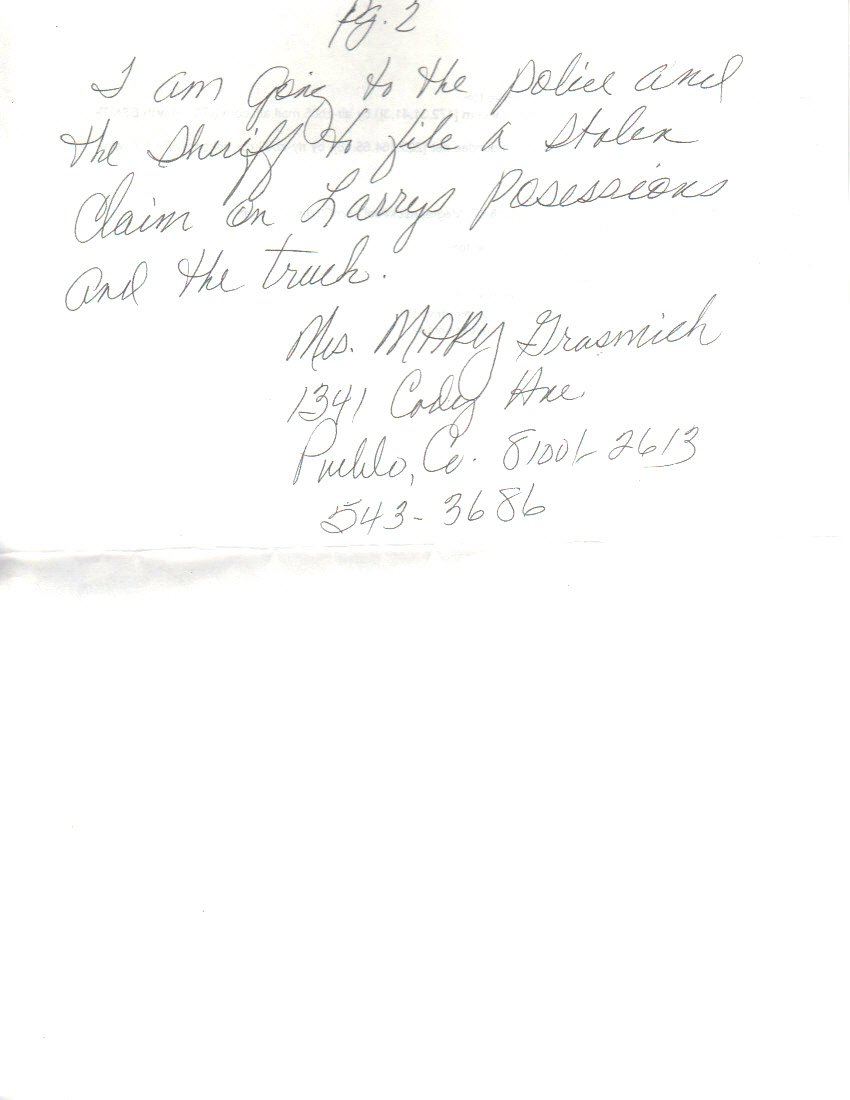 Pg. 2
I am going to the police and
the Sheriff to file a stolen
Claim on Larrys Posessions
and the truck.
Mrs. MARY Grasmich
1341 Cody Ave
Pueblo, Co. 81001-2613
543-3686